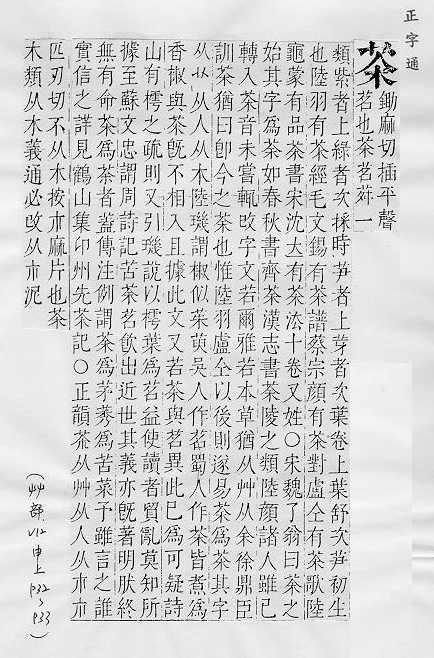 正字通
茶
鋤麻切插平聲
茗也茶茗荈一
類紫者上綠者次採時笋者上芽者次葉卷上葉舒次笋初生
也陸羽有茶經毛文錫有茶譜蔡宗顏有茶對盧仝有茶歌陸
龜蒙有品茶書宋沈大有茶法十卷又姓○宋魏了翁曰茶之
始其字爲荼如春秋書齊荼漢志書荼陵之類陸顏諸人雖已
轉入茶音未嘗輒改字文若爾雅若本草猶从艸从余徐鼎臣
訓荼猶曰卽今之茶也惟陸羽盧仝以後則遂易荼爲茶其字
从艸从人从木陸璣謂椒似茱萸吳人作茗蜀人作茶皆煮爲
香椒與茶旣不相入且據此文又若茶與茗異此已爲可疑詩
山有樗之疏則又引璣說以樗葉爲茗益使讀者貿亂莫知所
據至蘇文忠謂周詩記苦荼茗飲出近世其義亦旣著明肰終
無有命荼爲茶者蓋傳注例謂荼爲茅莠爲苦菜予雖言之誰
實信之詳見鶴山集卬州先茶記○正韻茶从艸从人从朩朩
匹刃切不从木按朩麻片也茶
木類从木義通必改从朩泥
(艸部 V12 申上 P32~P33)